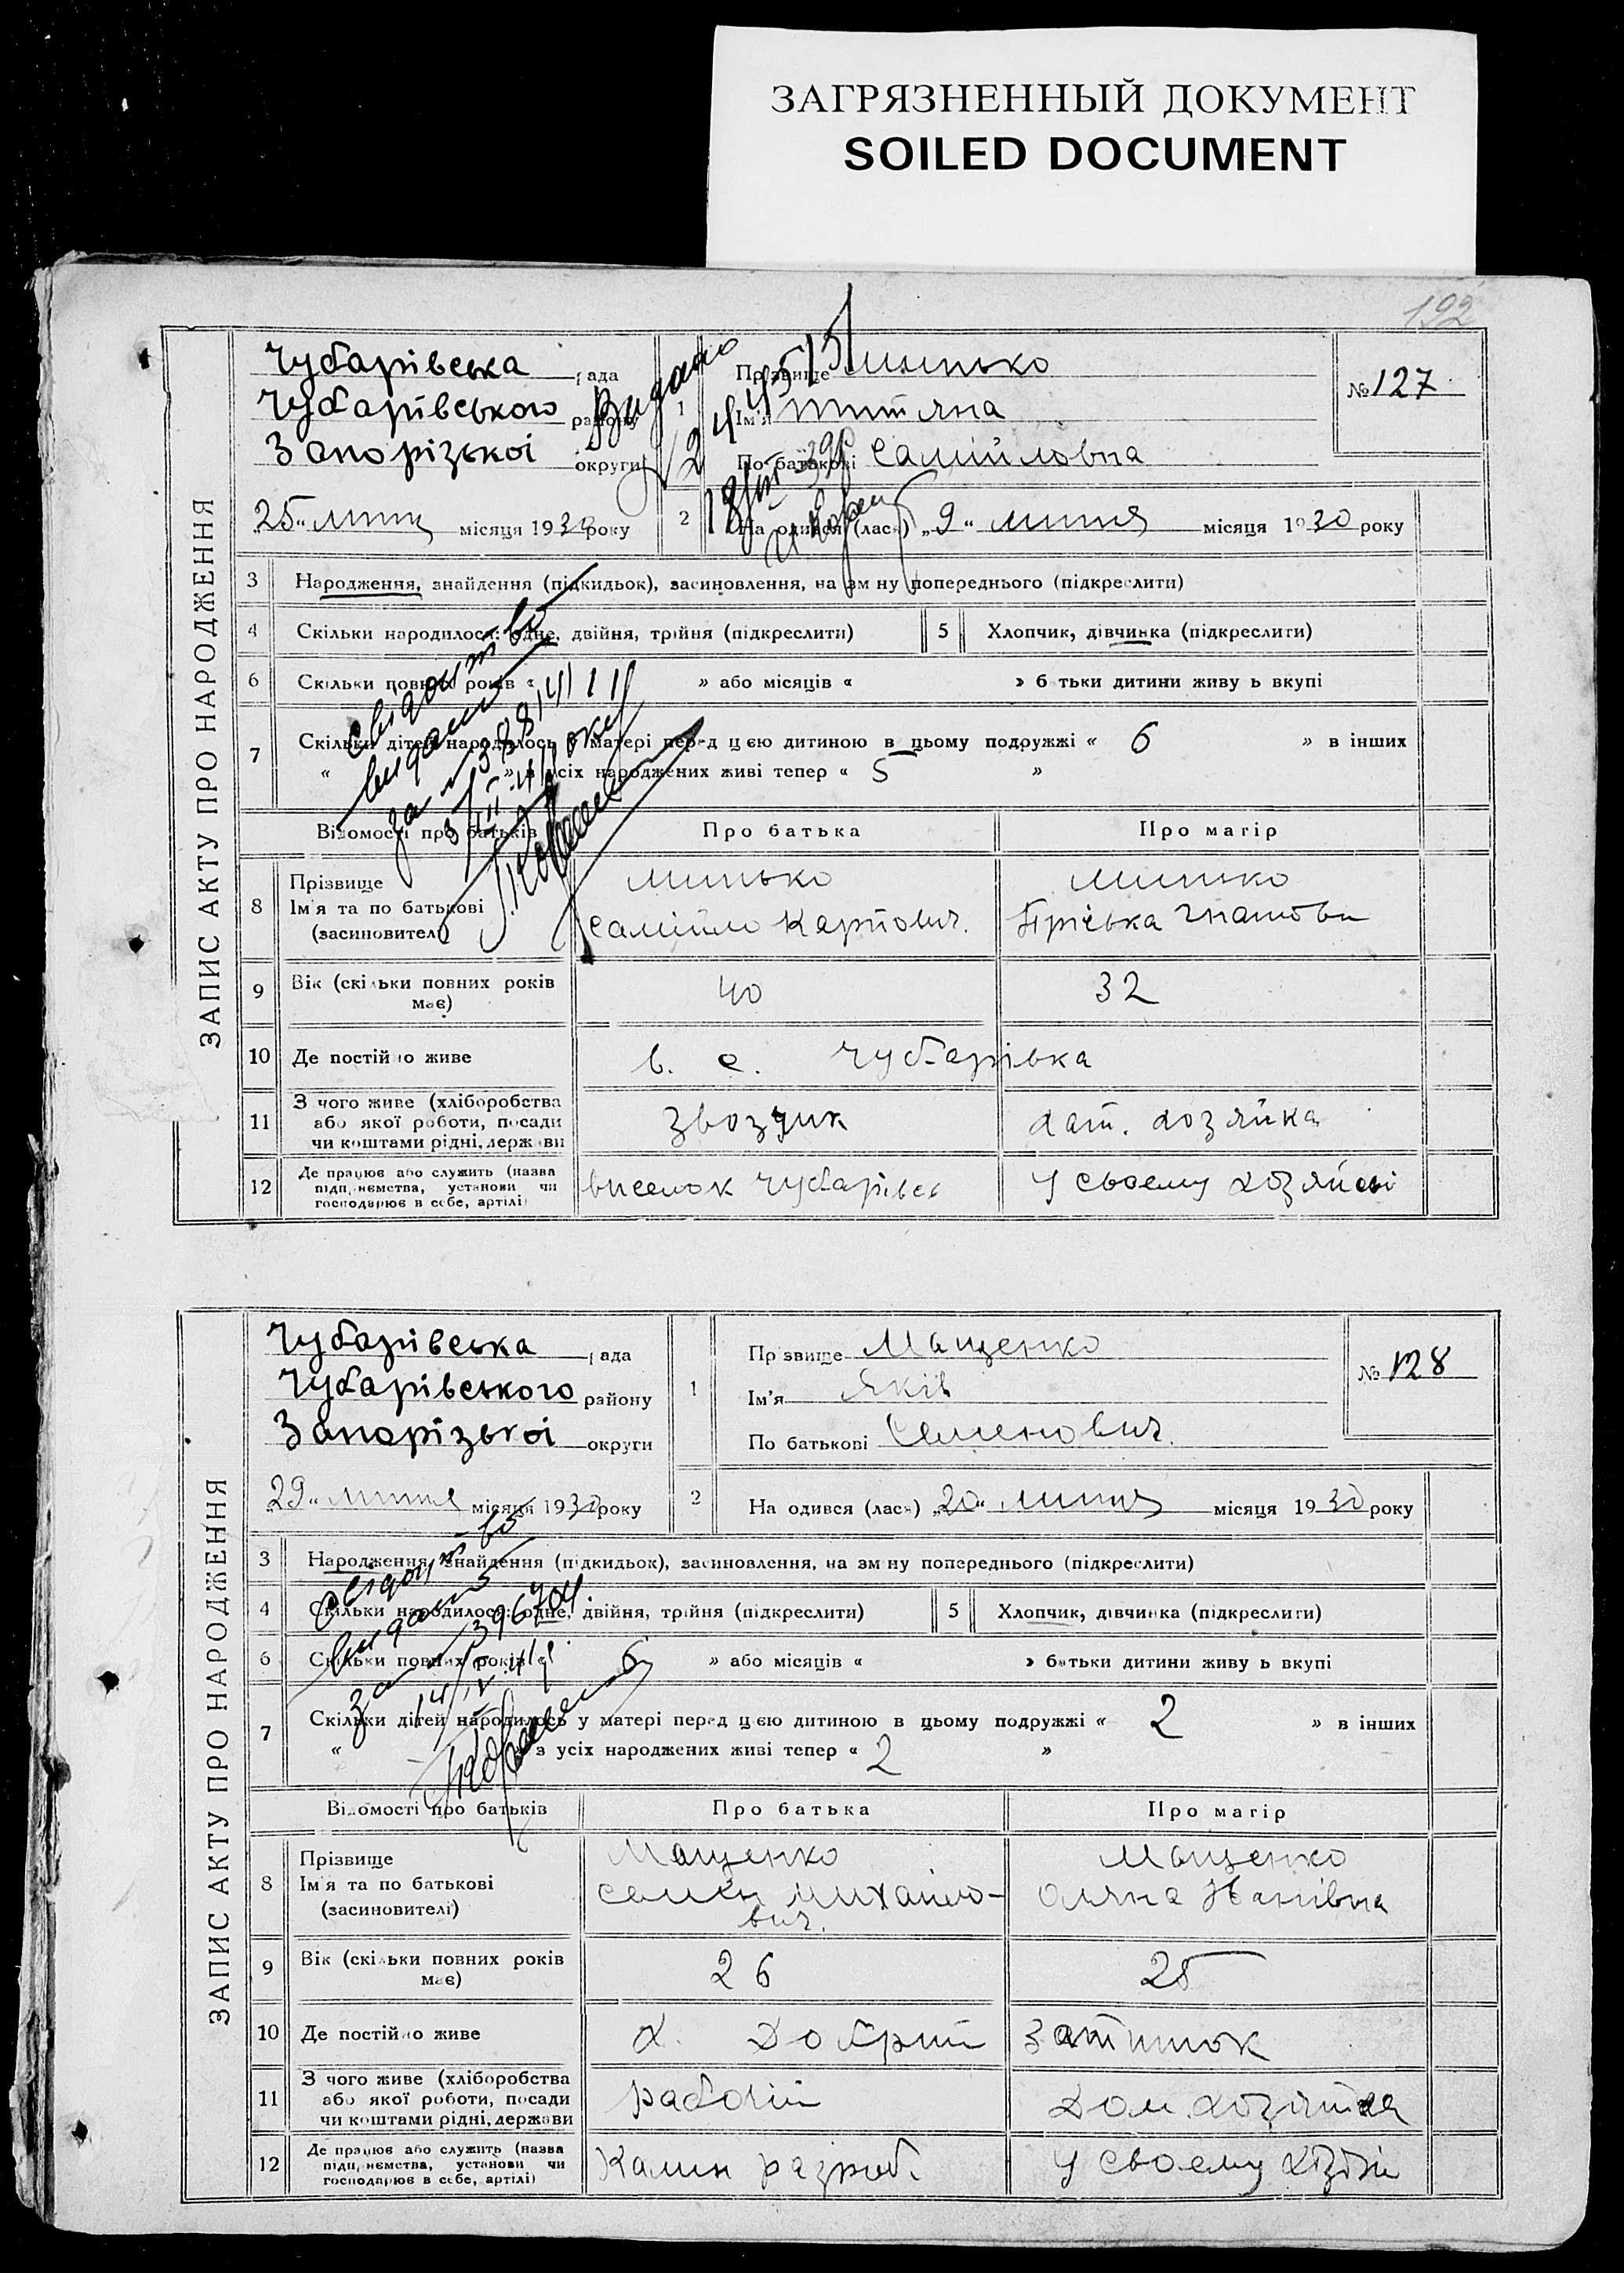 ЗАГРЯЗНЕННЫЙ ДОКУМЕНТ
SOILED DOCUMENT
192
ЗАПИС АКТУ ПРО НАРОДЖЕННЯ
Чубарівська рада
Чубарівського району
Запорізької округи
"25" липня місяця 1930 року
Видано
1 Прізвище Минько
Ім'я Титяна
По батькові Самійловна
№ 127
2 На одився (лася) "9" липня місяця 1930 року
3 Народження, знайдення (підкидьок), засиновлення, на зм ну попереднього (підкреслити)
4 Скільки народилося: одне, двійня, трійня (підкреслити)
5 Хлопчик, дівчинка (підкреслити)
6 Скільки повних років « » або місяців « » б тьки дитини живу ь вкупі
7 Скільки дітей народилось у матері перед цією дитиною в цьому подружжі « 6 » в інших
« » з усіх народжених живі тепер « 5 »
свідоцтво
видано
за №
Відомості про батьків
Про батька
Про матір
8 Прізвище
Ім'я та по батькові
(засиновителі)
Минько
Самійло Карпович.
Минько
Пріська Гнатовна
9 Вік (скільки повних років має)
40
32
10 Де постійно живе
в. с. Чубарівка
11 З чого живе (хліборобства
або якої роботи, посади
чи коштами рідні, держави
звозчик
хат. хозяйка
12 Де працює або служить (назва
підп, иємства, установи чи
господарює в себе, артілі)
виселок Чубарівс
у своему хозяйсві
ЗАПИС АКТУ ПРО НАРОДЖЕННЯ
Чубарівська рада
Чубарівського району
Запорізької округи
"29" липня місяця 1930 року
1 Прізвище Мащенко
Ім'я Яків
По батькові Семенович.
№ 128
2 На одився (лася) "20" липня місяця 1930 року
3 Народження, знайдення (підкидьок), засиновлення, на зм ну попереднього (підкреслити)
4 Скільки народилося: одне, двійня, трійня (підкреслити)
5 Хлопчик, дівчинка (підкреслити)
6 Скільки повних років « 6 » або місяців « » батьки дитини живу ь вкупі
7 Скільки дітей народилось у матері перед цією дитиною в цьому подружжі « 2 » в інших
« » з усіх народжених живі тепер « 2 »
свідоцтво
видано
за № 396704
Відомості про батьків
Про батька
Про матір
8 Прізвище
Ім'я та по батькові
(засиновителі)
Мащенко
Семен Михайло-
вич.
Мащенко
Оляна Іванівна
9 Вік (скільки повних років має)
26
25
10 Де постійно живе
х. Добрий затишок
11 З чого живе (хліборобства
або якої роботи, посади
чи коштами рідні, держави
рабочий
Дом. хозяйка
12 Де працює або служить (назва
підп, иємства, установи чи
господарює в себе, артілі)
Камин разроб.
У своему